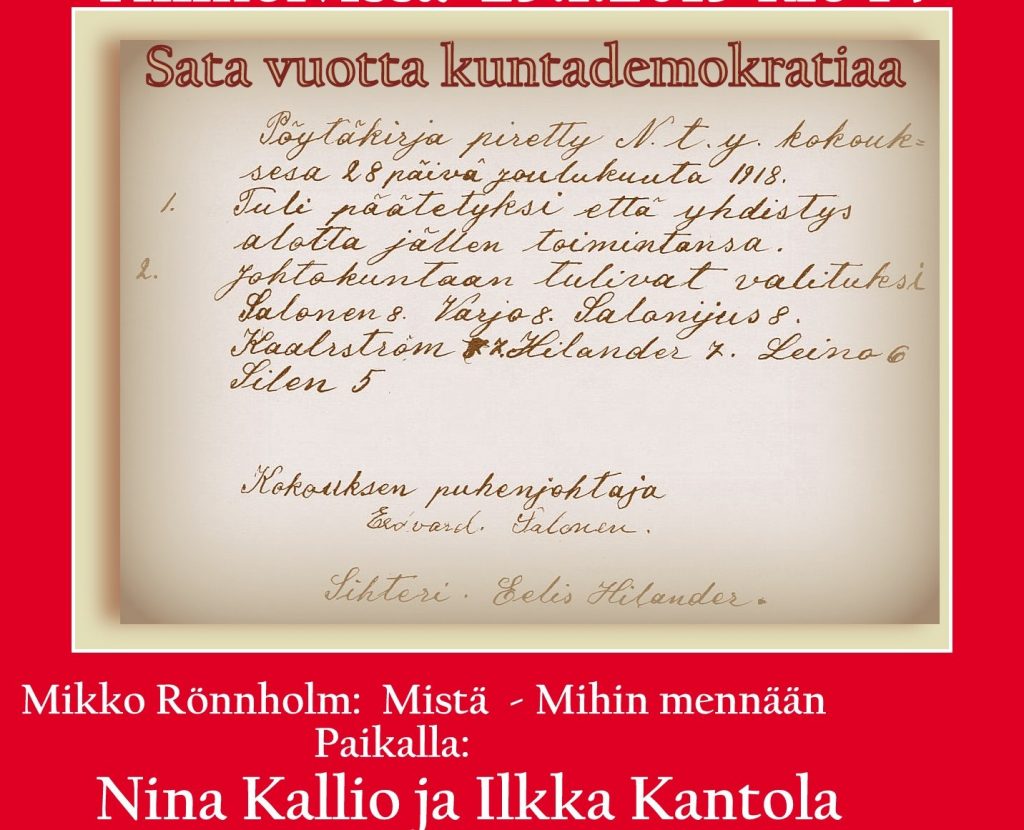 29.1.2019 klo 17
Sata vuotta kuntademokratiaa
Pöytäkirja piretty N. t. y. kokouk=
sesa 28 päivä joulukuuta 1918.
1. Tuli päätetyksi että yhdistys
alotta jällen toimintansa.
2. Johtokuntaan tulivat valituksi
Salonen 8. Varjo 8. Salonijus 8.
Kaalrström 7. Hilander 7. Leino 6
Silen 5
Kokouksen puhenjohtaja
Edvard. Salonen.
Sihteri. Eelis Hilander.
Mikko Rönnholm: Mistä - Mihin mennään
Paikalla:
Nina Kallio ja Ilkka Kantola